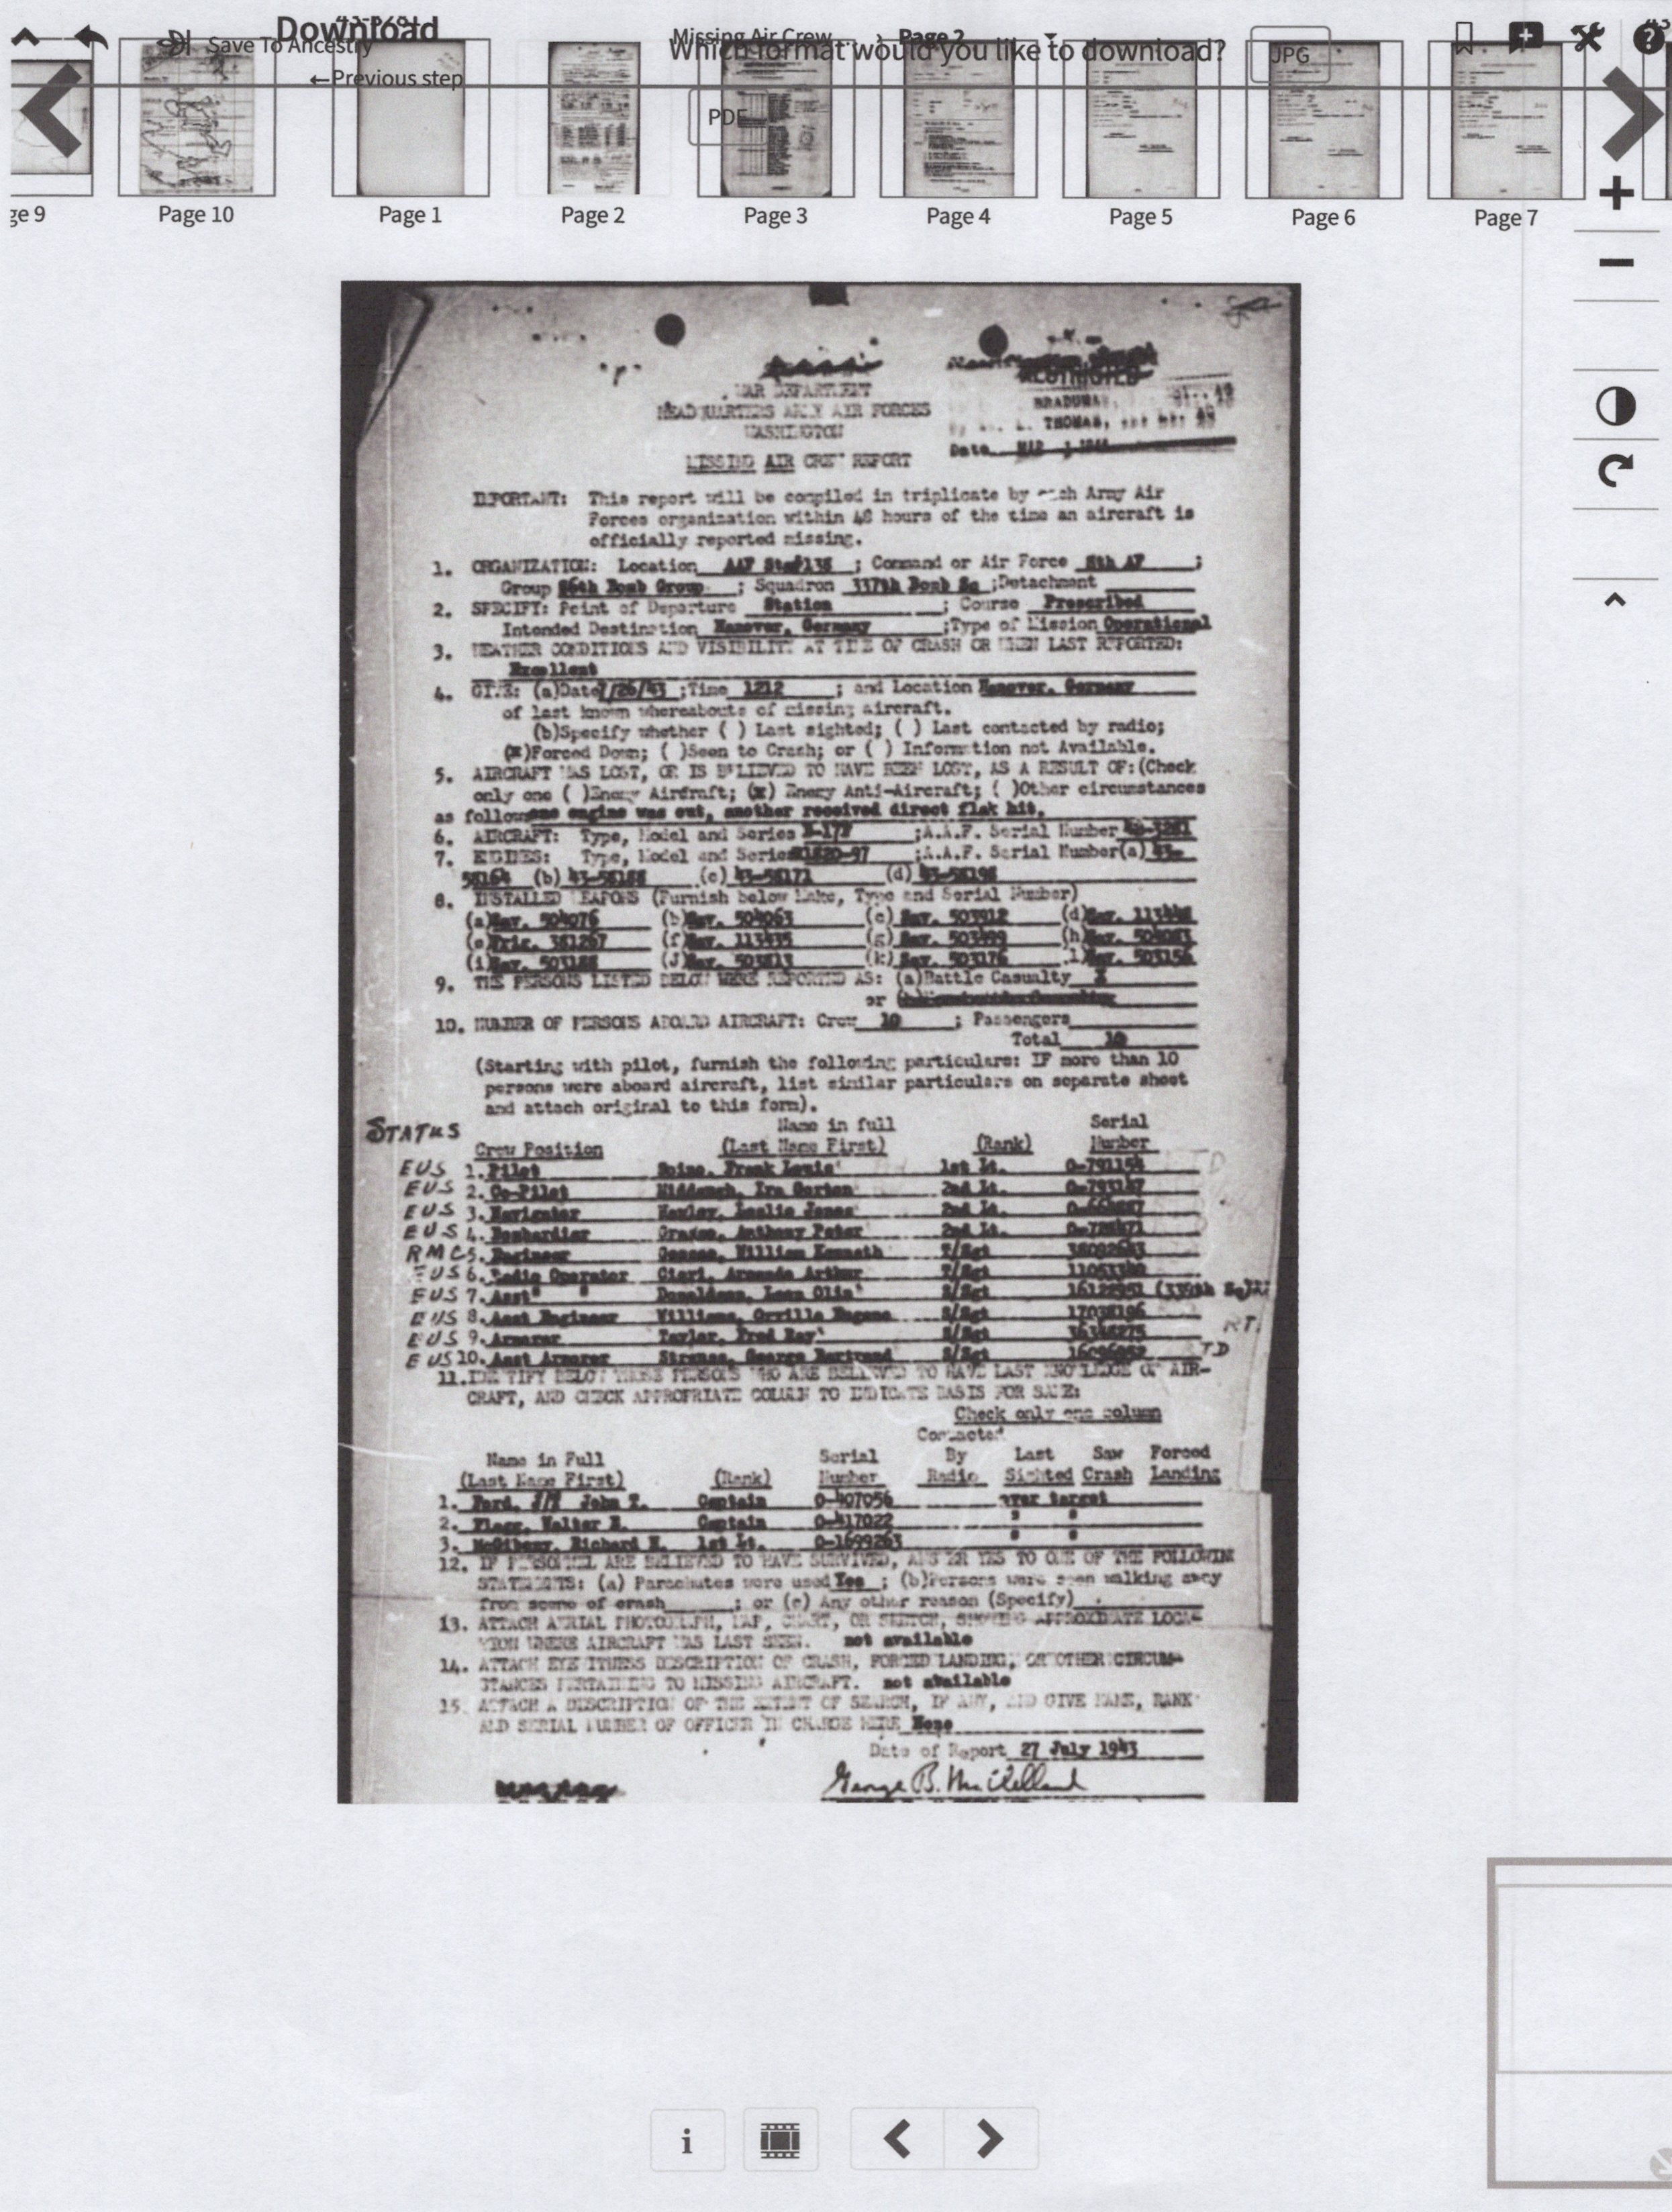 Download
Save To Ancestry
Missing Air Crew
Page 2
Which format would you like to download?
JPG
←Previous step
PDF
ge 9
Page 10
Page 1
Page 2
Page 3
Page 4
Page 5
Page 6
Page 7
WAR DEPARTMENT
HEADQUARTERS ARMY AIR FORCES
WASHINGTON
RESTRICTED
THOMAS,
Date MAR 1944
MISSING AIR CREW REPORT
IMPORTANT: This report will be compiled in triplicate by each Army Air
Forces organization within 48 hours of the time an aircraft is
officially reported missing.
1. ORGANIZATION: Location AAF ; Command or Air Force 8th AF ;
Group 96th Bomb Group ; Squadron 337th Bomb Sq ;Detachment
2. SPECIFY: Point of Departure Station ; Course Prescribed
Intended Destination Hanover, Germany ;Type of Mission Operational
3. WEATHER CONDITIONS AND VISIBILITY AT TIME OF CRASH OR WHEN LAST REPORTED:
Excellent
4. GIVE: (a)Date 7/26/43 ;Time 1212 ; and Location Hanover, Germany
of last known whereabouts of missing aircraft.
(b)Specify whether ( ) Last sighted; ( ) Last contacted by radio;
(x)Forced Down; ( )Seen to Crash; or ( ) Information not Available.
5. AIRCRAFT WAS LOST, OR IS BELIEVED TO HAVE BEEN LOST, AS A RESULT OF:(Check
only one ( )Enemy Aircraft; (x) Enemy Anti-Aircraft; ( )Other circumstances
as follows one engine was out, another received direct flak hit.
6. AIRCRAFT: Type, Model and Series B-17F ;A.A.F. Serial Number
7. ENGINES: Type, Model and Series R1820-97 ;A.A.F. Serial Number(a) 43-
58164 (b) 43-58188 (c) 43-58171 (d) 43-58198
8. INSTALLED WEAPONS (Furnish below Make, Type and Serial Number)
(a) Sav. 504076 (b) Sav. 504063 (c) Sav. 503912 (d) Sav.
(e) Frig. 381267 (f) Sav. 113435 (g) Sav. 503499 (h) Sav.
(i) Sav. 503188 (J) Sav. 503813 (k) Sav. 503176 l) Sav. 503156
9. THE PERSONS LISTED BELOW WERE REPORTED AS: (a)Battle Casualty X
or
10. NUMBER OF PERSONS ABOARD AIRCRAFT: Crew 10 ; Passengers
Total 10
(Starting with pilot, furnish the following particulars: IF more than 10
persons were aboard aircraft, list similar particulars on separate sheet
and attach original to this form).
STATUS
Name in full Serial
Crew Position (Last Name First) (Rank) Number
EUS 1. Pilot Frank Louis 1st Lt. 0-791154
EUS 2. Co-Pilot Ira Gorton 2nd Lt.
EUS 3. Navigator Leslie James 2nd Lt.
EUS 4. Bombardier Grasso, Anthony Peter 2nd Lt.
RMC 5. Engineer William Kenneth T/Sgt
EUS 6. Radio Operator Ciari, Armando Arthur T/Sgt
EUS 7. Asst " " Donaldson, Leon Olin S/Sgt
EUS 8. Asst Engineer Williams, Orville Eugene S/Sgt 17038196
EUS 9. Armorer Taylor, Fred Ray S/Sgt
RT
EUS 10. Asst Armorer George Bertrand S/Sgt
TD
11. IDENTIFY BELOW THOSE PERSONS WHO ARE BELIEVED TO HAVE LAST KNOWLEDGE OF AIR-
CRAFT, AND CHECK APPROPRIATE COLUMN TO INDICATE BASIS FOR SAME:
Check only one column
Contacted
Name in Full Serial By Last Saw Forced
(Last Name First) (Rank) Number Radio Sighted Crash Landing
1. Ford, John T. Captain 0-407056 over target
2. Flagg, Walter Captain 0-417022 " "
3. Richard 1st Lt. 0-1699263 " "
12. IF PERSONNEL ARE BELIEVED TO HAVE SURVIVED, ANSWER YES TO ONE OF THE FOLLOWING
STATEMENTS: (a) Parachutes were used Yes ; (b)Persons were seen walking away
from scene of crash ; or (c) Any other reason (Specify)
13. ATTACH AERIAL PHOTOGRAPH, MAP, CHART, OR SKETCH, SHOWING APPROXIMATE LOCA-
TION WHERE AIRCRAFT WAS LAST SEEN. not available
14. ATTACH EYEWITNESS DESCRIPTION OF CRASH, FORCED LANDING, OR OTHER CIRCUM-
STANCES PERTAINING TO MISSING AIRCRAFT. not available
15. ATTACH A DESCRIPTION OF THE EXTENT OF SEARCH, IF ANY, AND GIVE NAME, RANK
AND SERIAL NUMBER OF OFFICER IN CHARGE HERE None
Date of Report 27 July 1943
George B. McClelland